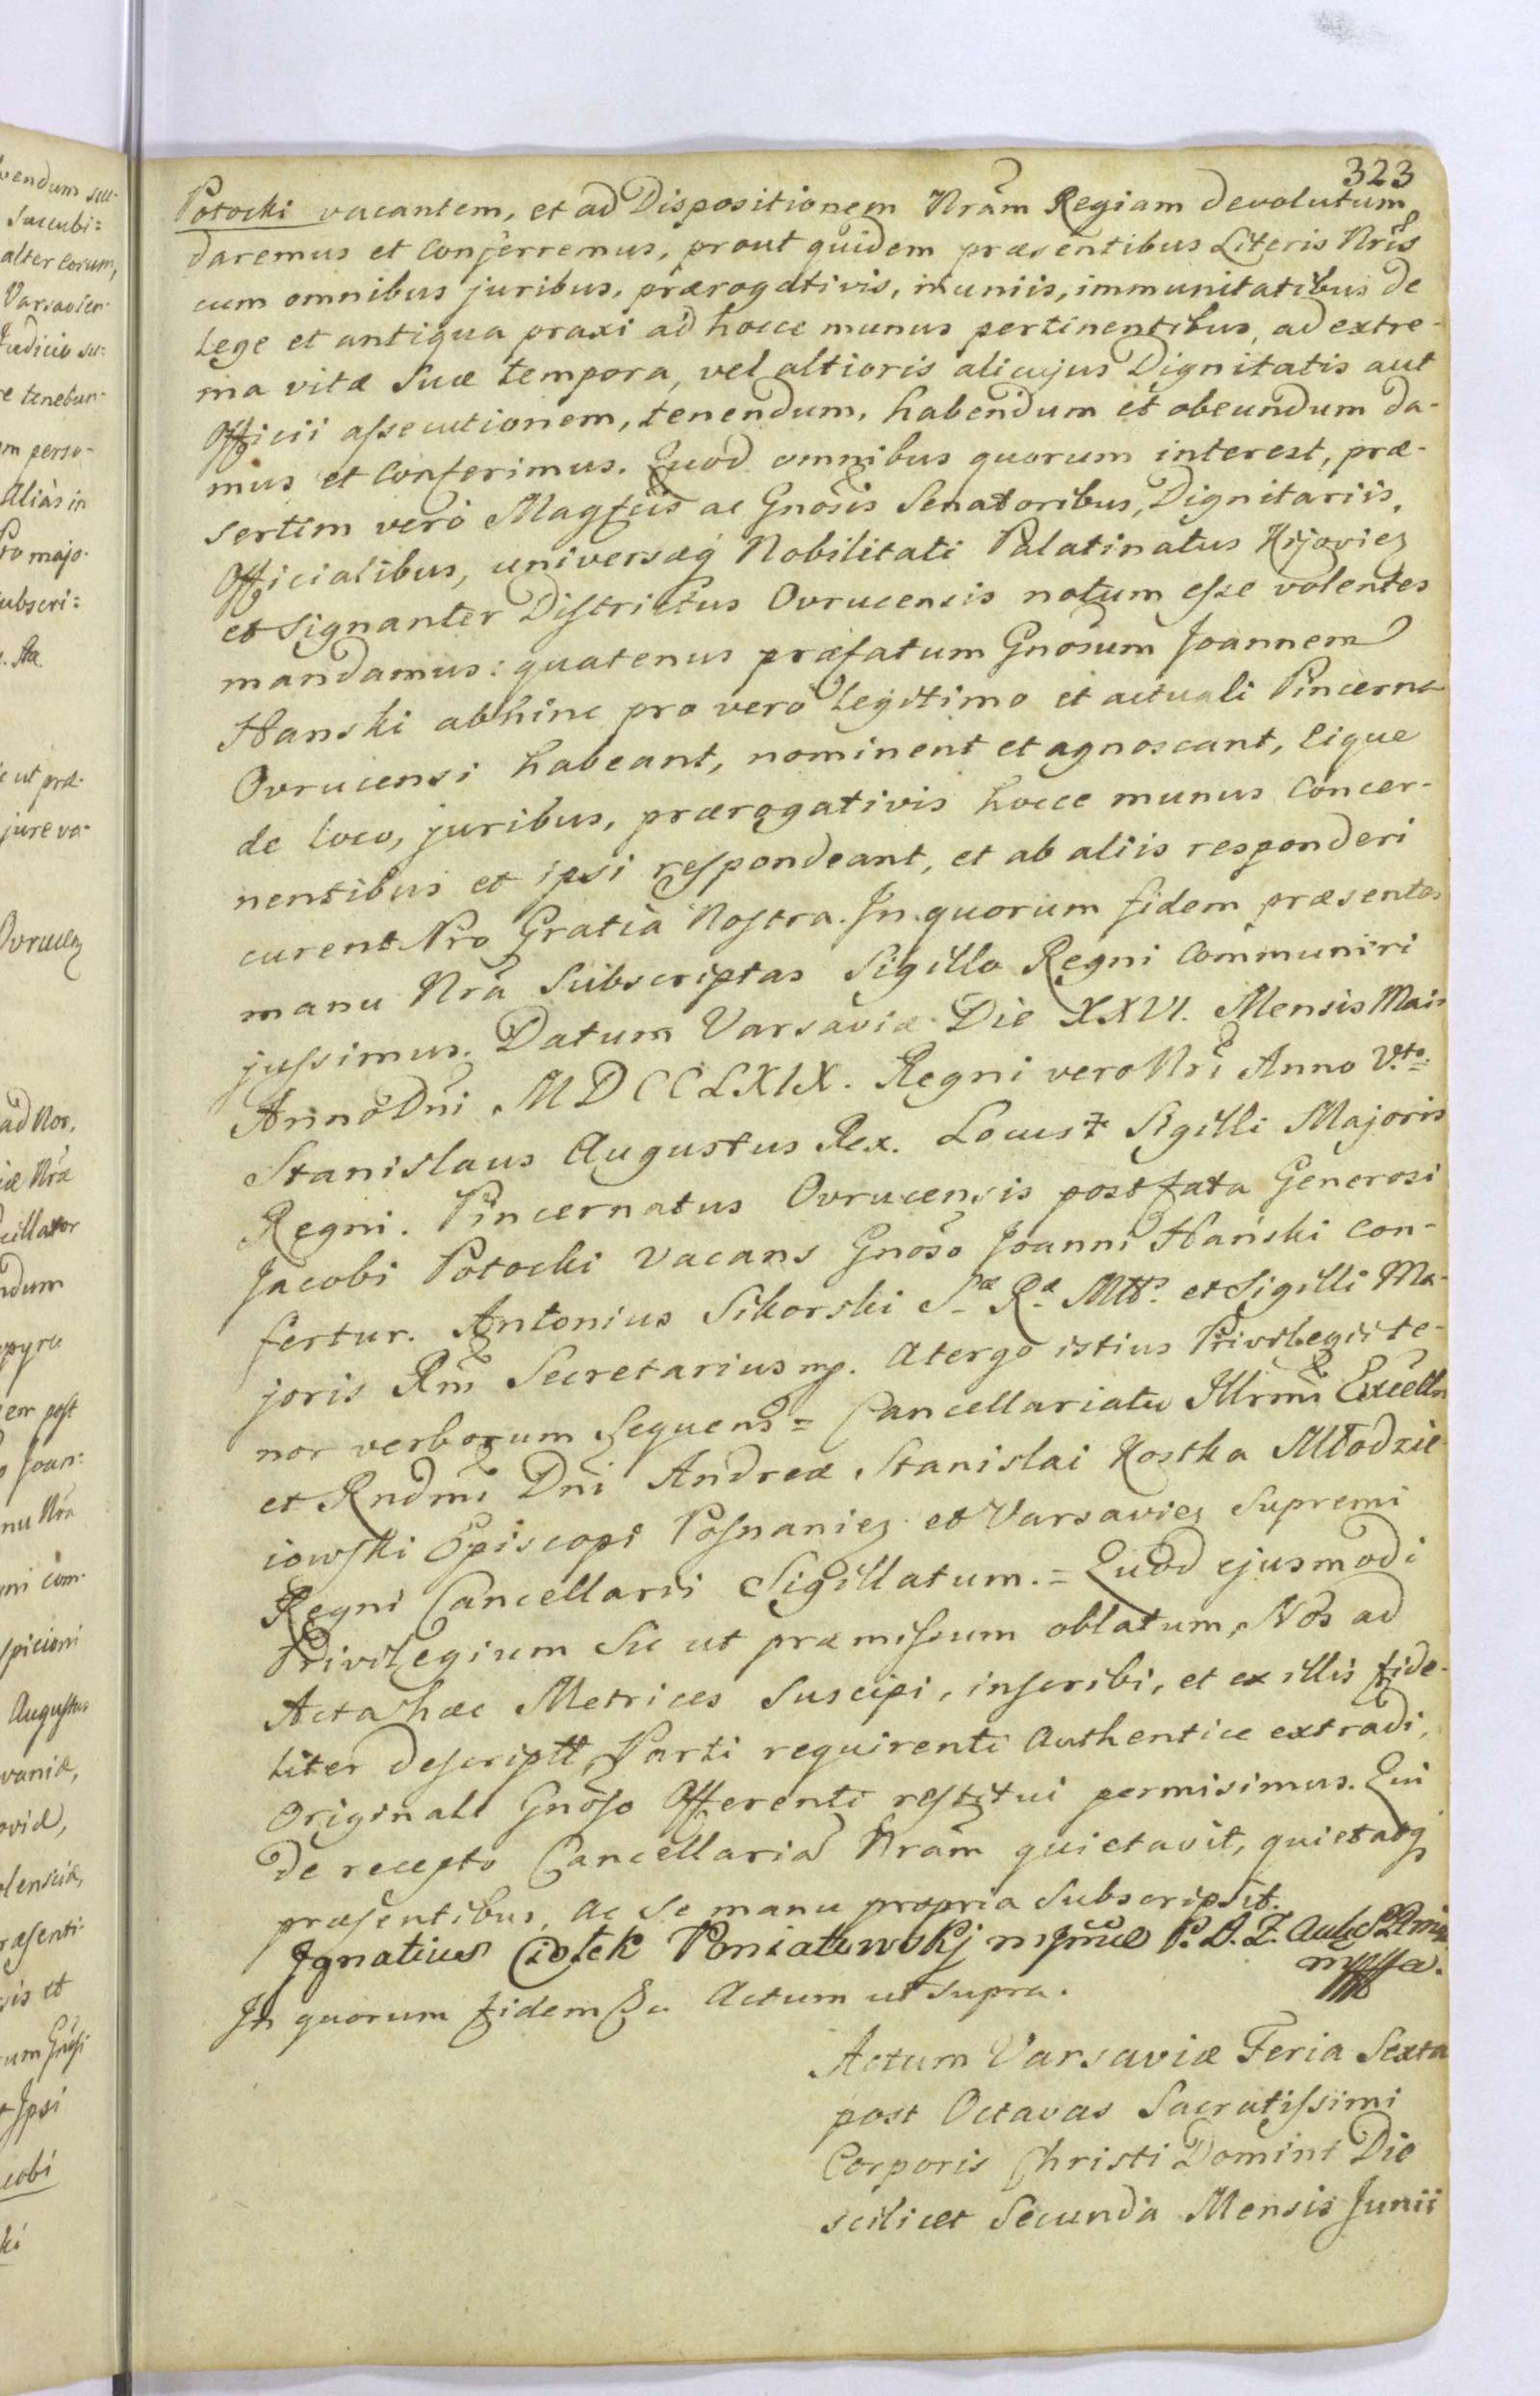 323
Potocki vacantem, et ad Dispositionem Nram Regiam devolutum,
daremus et conferremus, prout quidem præsentibus Literis Nris
cum omnibus juribus, prærogativis, muniis, immunitatibus de
Lege et antiqua praxi ad hocce munus pertinentibus, ad extre-
ma vitæ suæ tempora, vel altioris alicujus Dignitatis aut
Officii assecutionem, tenendum, habendum et obeundum da-
mus et conferimus. Quod omnibus quorum interest, præ-
sertim verò Magfcis ac Gnosis Senatoribus, Dignitariis,
Officialibus, universæq Nobilitati Palatinatus Kijovien
et signanter Districtus Ovrucensis notum esse volentes
mandamus: quatenus præfatum Gnosum Joannem
Hanski abhinc pro vero legitimo et actuali Pincerna
Ovrucensi habeant, nominent et agnoscant, Eique
de loco, juribus, prærogativis hocce munus concer-
nentibus et ipsi respondeant, et ab aliis responderi
curent Pro Gratia Nostra. In quorum fidem præsentes
manu Nra Subscriptas Sigillo Regni Communiri
jussimus. Datum Varsaviæ Die XXVI. Mensis Maii
Anno Dni MDCCLXIX. Regni vero Nri Anno V.to =
Stanislaus Augustus Rex. Locus + Sigilli Majoris
Regni. Pincernatus Ovrucensis post fata Generosi
Jacobi Potocki Vacans Gnoso Joanni Hański con-
fertur. Antonius Sikorski S.æ R.æ Mttis. et Sigilli Ma-
joris Rni Secretarius mp. Atergo istius Privilegii te-
nor verborum Sequens = Cancellariatu Illrmi Excelln
et Rndmi Dni Andreæ Stanislai Kostka Młodzie-
iowski Episcopi Posnanien et Varsavien Supremi
Regni Cancellarii Sigillatum. = Quod ejusmodi
Privilegium Sic ut præmissum oblatum, Nos ad
Acta hæc Metrices Suscipi, inscribi, et ex illis fide-
liter descriptt, Parti requirenti Authentice extradi,
Originale Gnoso Offerenti restitui permisimus. Qui
de recepto Cancellariam Nram quietavit, quietatq
præsentibus, ac se manu propria Subscripsit.
Ignatius Ciołek Poniatowskj P. D. Z.
In quorum fidem &a Actum ut Supra.
Actum Varsaviæ Feria Sexta
post Octavas Sacratissimi
Corporis Christi Domini Die
scilicet Secunda Mensis Junii